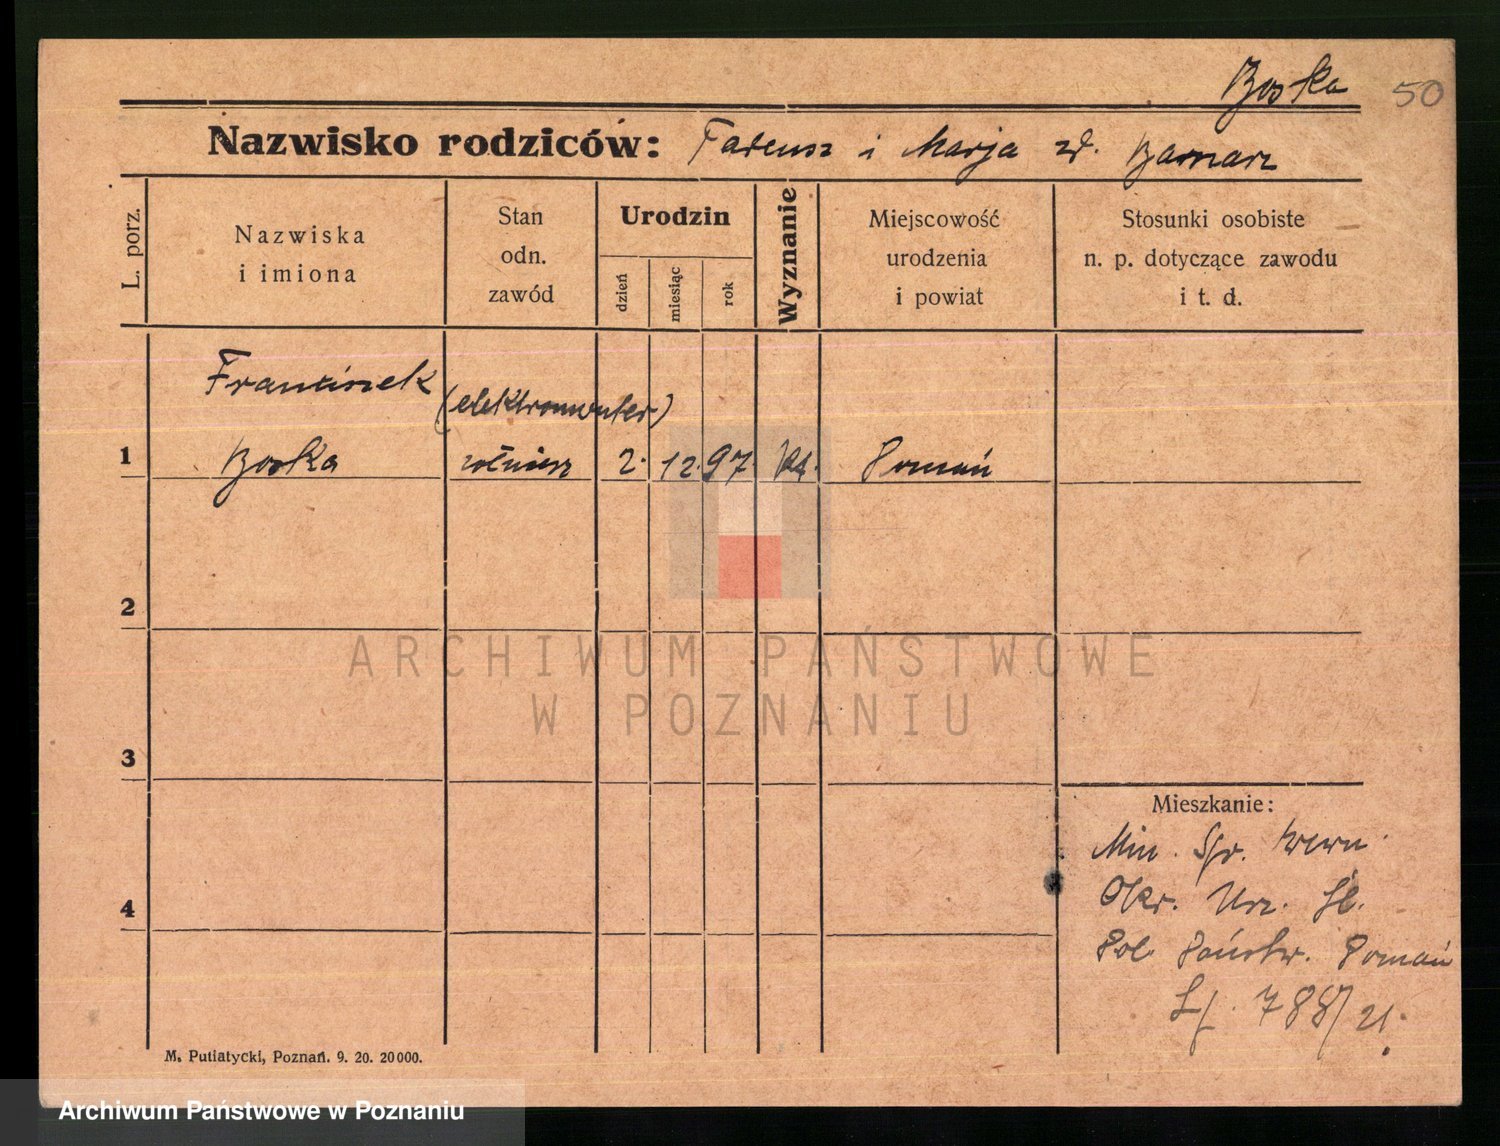 Boska 50
Nazwisko rodziców: Tadeusz i Marja zd.
L. porz.
Nazwiska
i imiona
Stan
odn.
zawód
Urodzin
dzień
miesiąc
rok
Wyznanie
Miejscowość
urodzenia
i powiat
Stosunki osobiste
n. p. dotyczące zawodu
i t. d.
Franciszek (elektromonter)
1 Boska żołnierz 2. 12. 97. kt. Poznań
2
3
4
ARCHIWUM PAŃSTWOWE
W POZNANIU
Mieszkanie:
Min. Spr. Wewn.
Okr. Urz. Śl.
Pol. Państw. Poznań
788/21.
M. Putiatycki, Poznań. 9. 20. 20000.
Archiwum Państwowe w Poznaniu